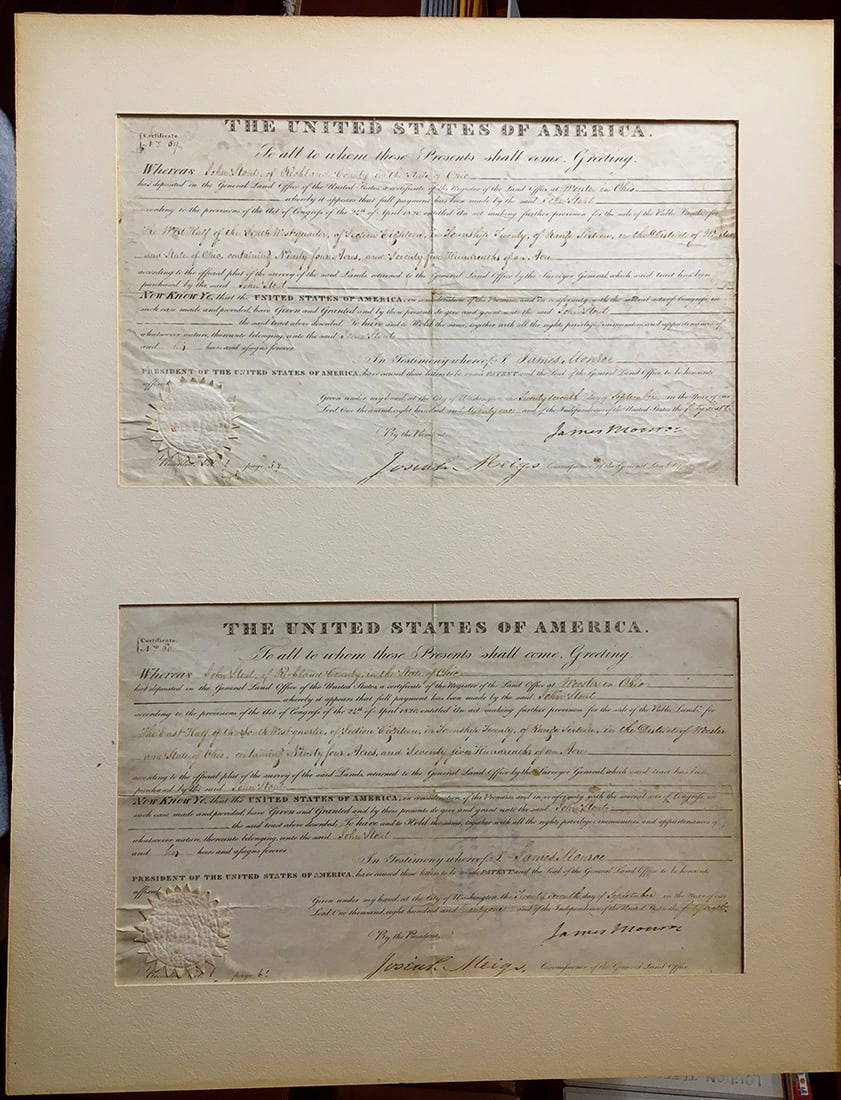 THE UNITED STATES OF AMERICA.
{Certificate
To all to whom these Presents shall come, Greeting.
Whereas John Stout, of Richland County in the State of Ohio
has deposited in the General Land Office of the United States, a certificate of the Register of the Land Office at Wooster in Ohio
whereby it appears that full payment has been made by the said John Stout
according to the provisions of the Act of Congress of the 24th of April 1820, entitled An act making further provision for the sale of the Public Lands, for
The West Half of the South West quarter, of Section Eighteen, in Township Twenty, of Range Sixteen, in the District of Wooster
and State of Ohio, containing Ninety four Acres, and Seventy five Hundredths of an Acre
according to the official plat of the survey of the said Lands, returned to the General Land Office by the Surveyor General, which said tract has been
purchased by the said John Stout
Now Know Ye, that the UNITED STATES OF AMERICA, in consideration of the Premises, and in conformity with the several acts of Congress, in
such case made and provided, have Given and Granted and by these presents do give and grant unto the said John Stout
the said tract above described: To have and to Hold the same, together with all the rights, privileges, immunities, and appurtenances of
whatsoever nature, thereunto belonging, unto the said John Stout
and his heirs and assigns forever.
In Testimony whereof, I James Monroe
PRESIDENT OF THE UNITED STATES OF AMERICA, have caused these letters to be made PATENT and the Seal of the General Land Office to be hereunto
affixed.
Given under my hand, at the City of Washington, the Twenty seventh day of September in the Year of our
Lord One thousand, eight hundred and twenty one and of the Independence of the United States the forty sixth
By the President,
James Monroe
Josiah Meigs Commissioner of the General Land Office
page 59
THE UNITED STATES OF AMERICA.
{Certificate
To all to whom these Presents shall come, Greeting.
Whereas John Stout, of Richland County, in the State of Ohio
has deposited in the General Land Office of the United States, a certificate of the Register of the Land Office at Wooster in Ohio
whereby it appears that full payment has been made by the said John Stout
according to the provisions of the Act of Congress of the 24th of April 1820, entitled An act making further provision for the sale of the Public Lands, for
The East Half of the South West quarter, of Section Eighteen, in Township Twenty, of Range Sixteen, in the District of Wooster
and State of Ohio, containing Ninety four Acres, and Seventy five Hundredths of an Acre
according to the official plat of the survey of the said Lands, returned to the General Land Office by the Surveyor General, which said tract has been
purchased by the said John Stout
Now Know Ye, that the UNITED STATES OF AMERICA, in consideration of the Premises, and in conformity with the several acts of Congress, in
such case made and provided, have Given and Granted and by these presents do give and grant unto the said John Stout
the said tract above described: To have and to Hold the same, together with all the rights, privileges, immunities, and appurtenances of
whatsoever nature, thereunto belonging, unto the said John Stout
and his heirs and assigns forever.
In Testimony whereof, I James Monroe
PRESIDENT OF THE UNITED STATES OF AMERICA, have caused these letters to be made PATENT and the Seal of the General Land Office to be hereunto
affixed.
Given under my hand, at the City of Washington, the Twenty seventh day of September in the Year of our
Lord One thousand, eight hundred and twenty one and of the Independence of the United States the forty sixth
By the President,
James Monroe
Josiah Meigs, Commissioner of the General Land Office
page